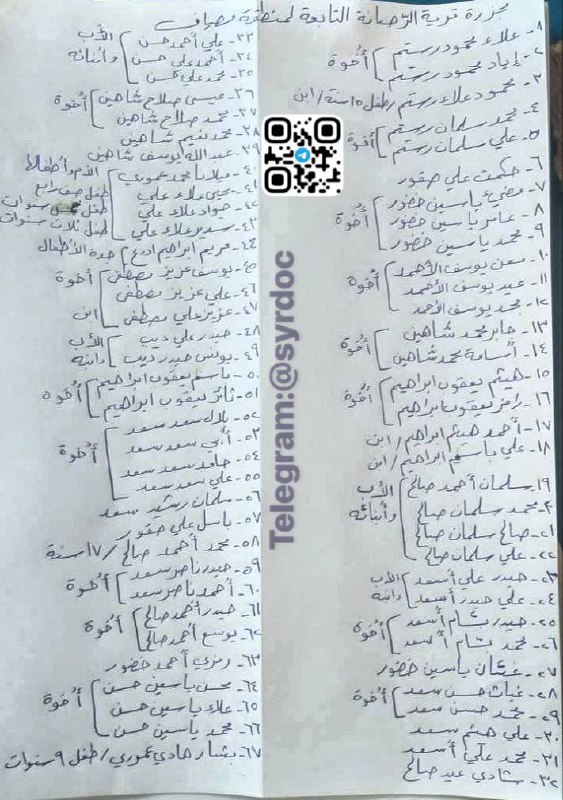 مجزرة قرية الرصافة التابعة لمنطقة مصياف
١- علاء محمود رستم
٢- إياد محمود رستم
أخوة
٣- محمود علاء رستم / طفل ١٥ سنة / ابن
٤- محمد سلمان رستم
٥- علي سلمان رستم
أخوة
٦- حكمت علي صقور
٧- مضر ياسين خضور
٨- عامر ياسين خضور
٩- محمد ياسين خضور
أخوة
١٠- معن يوسف الأحمد
١١- عبد يوسف الأحمد
١٢- محمد يوسف الأحمد
أخوة
١٣- جابر محمد شاهين
١٤- أسامة محمد شاهين
أخوة
١٥- هيثم يعقوب ابراهيم
١٦- رامز يعقوب ابراهيم
أخوة
١٧- أحمد هيثم ابراهيم / ابن
١٨- علي باسم ابراهيم / ابن
١٩- سلمان أحمد صالح
٢٠- محمد سلمان صالح
٢١- صالح سلمان صالح
٢٢- علي سلمان صالح
الأب
وأبنائه
٢٣- حيدر علي أسعد
٢٤- علي حيدر أسعد
الأب
وابنه
٢٥- حيدر بسام أسعد
٢٦- محمد بسام أسعد
أخوة
٢٧- غسان ياسين خضور
٢٨- غياث حسن سعد
٢٩- محمد حسن سعد
أخوة
٣٠- علي هيثم سعد
٣١- محمد علي أسعد
٣٢- شادي عيد صالح
٣٣- علي أحمد حسن
٣٤- أحمد علي حسن
٣٥- محمد علي حسن
الأب
وأبنائه
٣٦- عيسى صلاح شاهين
٣٧- محمد صلاح شاهين
أخوة
٣٨- محمد نعيم شاهين
٣٩- عبدالله يوسف شاهين
٤٠- ميلانا محمد عموري
٤١- يحيى علاء علي
٤٢- جواد علاء علي
٤٣- سدير علاء علي
الأم وأطفالها
طفل صف رابع
طفل سنوات
طفل ثلاث سنوات
٤٤- مريم ابراهيم جدة الأطفال
٤٥- يوسف عزيز مصطفى
٤٦- علي عزيز مصطفى
أخوة
٤٧- عزيز علي مصطفى ابن
٤٨- حيدر علي ديب
٤٩- يونس حيدر ديب
الأب
وابنه
٥٠- باسم يعقوب ابراهيم
٥١- ثائر يعقوب ابراهيم
أخوة
٥٢- بلال سعد سعد
٥٣- أبي سعد سعد
٥٤- حامد سعد سعد
٥٥- علي سعد سعد
أخوة
٥٦- سلمان رشيد سعد
٥٧- باسل علي صقور
٥٨- محمد أحمد صالح / ١٧ سنة
٥٩- حيدر ناصر سعد
٦٠- أحمد ناصر سعد
أخوة
٦١- حيدر أحمد صالح
٦٢- يوسع أحمد صالح
أخوة
٦٣- رمزي أحمد خضور
٦٤- محسن ياسين حسن
٦٥- علاء ياسين حسن
٦٦- محمد ياسين حسن
أخوة
٦٧- بشار هادي عموري / طفل ٩ سنوات
Telegram:@syrdoc